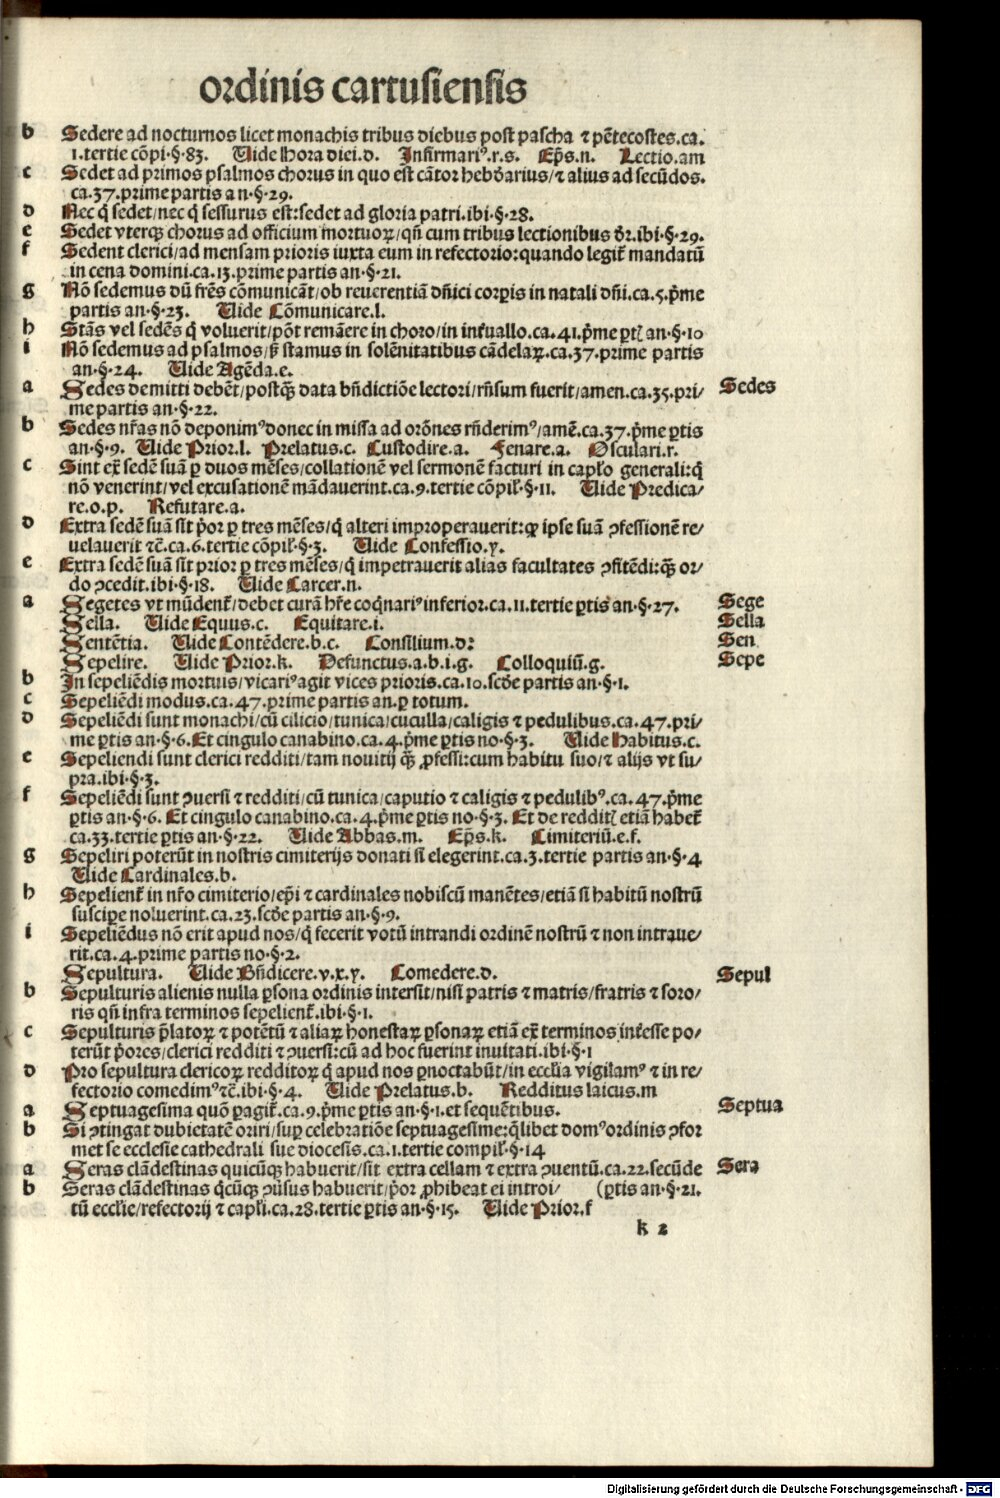 ordinis cartusiensis
b Sedere ad nocturnos licet monachis tribus diebus post pascha ⁊ pētecostes.ca.
1.tertie cōpi.§.83. Uide Hora diei.d. Infirmariꝰ.r.s. Ep̄s.n. Lectio.am
c Sedet ad primos psalmos chorus in quo est cātor hebdarius/⁊ alius ad secūdos.
ca.37.prime partis an.§.29.
d Nec q̇ sedet/nec q̇ sessurus est:sedet ad gloria patri.ibi.§.28.
e Sedet vterqꝫ chorus ad officium mortuoꝝ/qn̄ cum tribus lectionibus dr̄.ibi.§.29.
f Sedent clerici/ad mensam prioris iuxta eum in refectorio:quando legit᷑ mandatū
in cena domini.ca.13.prime partis an.§.21.
g Nō sedemus dū fr̄es cōmunicāt/ob reuerentiā dn̄ici corꝑis in natali dn̄i.ca.5.p̄me
partis an.§.23. Uide Cōmunicare.l.
h Stās vel sedēs q̇ voluerit/pōt remāere in choro/in int̓uallo.ca.41.p̄me ꝑtꝭ an.§.10
i Nō sedemus ad psalmos/sꝫ stamus in solēnitatibus cādelaꝝ.ca.37.prime partis
an.§.24. Uide Agēda.e.
a Sedes demitti debēt/postꝙ̄ data bn̄dictiōe lectori/rn̄sum fuerit/amen.ca.35.pri/ Sedes
me partis an.§.22.
b Sedes nr̄as nō deponimꝰ donec in missa ad orōnes rn̄derimꝰ/amē.ca.37.p̄me ꝑtis
an.§.9. Uide Prior.l. Prelatus.c. Custodire.a. Fenare.a. Osculari.r.
c Sint ex̄ sedē suā ꝑ duos mēses/collationē vel sermonē facturi in capl̓o generali:q̇
nō venerint/vel excusationē mādauerint.ca.9.tertie cōpil̓.§.11. Uide Predica/
re.o.p. Refutare.a.
d Extra sedē suā sit p̓or ꝑ tres mēses/q̇ alteri improperauerit:ꝙ ipse suā ꝯfessionē re/
uelauerit ⁊c̄.ca.6.tertie cōpil̓.§.3. Uide Confessio.y.
e Extra sedē suā sit prior ꝑ tres mēses/q̇ impetrauerit alias facultates ꝯfitēdi:ꝙ̄ or/
do ꝯcedit.ibi.§.18. Uide Carcer.n.
a Segetes vt mūdent᷑/debet curā hr̄e coq̇nariꝰ inferior.ca.11.tertie ꝑtis an.§.27. Sege
Sella. Uide Equus.c. Equitare.i. Sella
Sentētia. Uide Contēdere.b.c. Consilium.d: Sen
Sepelire. Uide Prior.k. Defunctus.a.b.i.g. Colloquiū.g. Sepe
b In sepeliēdis mortuis/vicariꝰ agit vices prioris.ca.10.scd̓e partis an.§.1.
c Sepeliēdi modus.ca.47.prime partis an.ꝑ totum.
d Sepeliēdi sunt monachi/cū cilicio/tunica/cuculla/caligis ⁊ pedulibus.ca.47.pri/
me ꝑtis an.§.6.Et cingulo canabino.ca.4.p̄me ꝑtis no.§.3. Uide Habitus.c.
e Sepeliendi sunt clerici redditi/tam nouitij ꝙ̄ ꝓfessi:cum habitu suo/⁊ alijs vt su/
pra.ibi.§.3.
f Sepeliēdi sunt ꝯuersi ⁊ redditi/cū tunica/caputio ⁊ caligis ⁊ pedulibꝰ.ca.47.p̄me
ꝑtis an.§.6. Et cingulo canabino.ca.4.p̄me ꝑtis no.§.3. Et de redditꝭ etiā habet᷑
ca.33.tertie ꝑtis an.§.22. Uide Abbas.m. Ep̄s.k. Cimiteriū.e.f.
g Sepeliri poterūt in nostris cimiterijs donati si elegerint.ca.3.tertie partis an.§.4
Uide Cardinales.b.
h Sepelient᷑ in nr̄o cimiterio/ep̄i ⁊ cardinales nobiscū manētes/etiā si habitū nostrū
suscipe noluerint.ca.23.scd̓e partis an.§.9.
i Sepeliēdus nō erit apud nos/q̇ fecerit votū intrandi ordinē nostrū ⁊ non intraue/
rit.ca.4.prime partis no.§.2.
Sepultura. Uide Bn̄dicere.v.x.y. Comedere.d. Sepul
b Sepulturis alienis nulla ꝑsona ordinis intersit/nisi patris ⁊ matris/fratris ⁊ soro/
ris qn̄ infra terminos sepelient᷑.ibi.§.1.
c Sepulturis p̄latoꝝ ⁊ potētū ⁊ aliaꝝ honestaꝝ ꝑsonaꝝ etiā ex̄ terminos int̓esse po/
terūt p̓ores/clerici redditi ⁊ ꝯuersi:cū ad hoc fuerint inuitati.ibi.§.1
d Pro sepultura clericoꝝ redditoꝝ q̇ apud nos ꝑnoctabūt/in eccl̓ia vigilamꝰ ⁊ in re/
fectorio comedimꝰ ⁊c̄.ibi.§.4. Uide Prelatus.b. Redditus laicus.m
a Septuagesima quō ꝑagit᷑.ca.9.p̄me ꝑtis an.§.1.et sequētibus. Septua
b Si ꝯtingat dubietatē oriri/suꝑ celebratiōe septuagesime:q̄libet domꝰ ordinis ꝯfor
met se ecclesie cathedrali sue diocesis.ca.1.tertie compil̓.§.14
a Seras clādestinas quicūqꝫ habuerit/sit extra cellam ⁊ extra ꝯuentū.ca.22.secūde Sera
b Seras clādestinas q̇cūqꝫ ꝯūsus habuerit/p̓or ꝓhibeat ei introi/ (ꝑtis an.§.21.
tū eccl̓ie/refectorij ⁊ capl̓i.ca.28.tertie ꝑtis an.§.15. Uide Prior.f
k 2
Digitalisierung gefördert durch die Deutsche Forschungsgemeinschaft - DFG